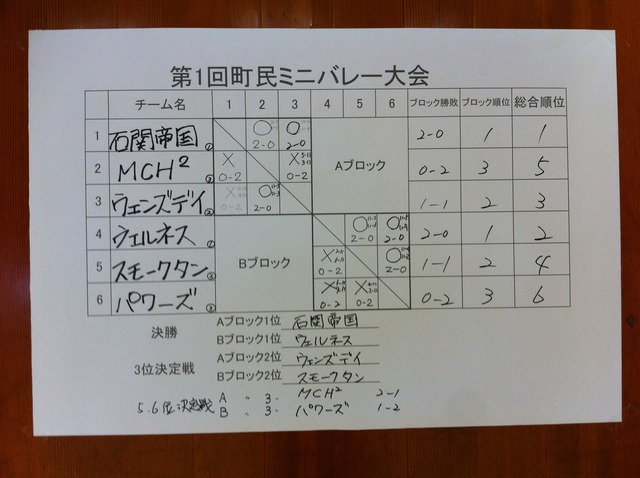 第1回町民ミニバレー大会
チーム名 1 2 3 4 5 6 ブロック勝敗 ブロック順位 総合順位
1 石関帝国 ○ 2-0 ○ 2-0 Aブロック 2-0 1 1
2 MCH² × 0-2 × 0-2 0-2 3 5
3 ウェンズデイ × 0-2 ○ 2-0 1-1 2 3
4 ウェルネス Bブロック ○ 2-0 ○ 2-0 2-0 1 2
5 スモークタン × 0-2 ○ 2-0 1-1 2 4
6 パワーズ × 0-2 × 0-2 0-2 3 6
決勝 Aブロック1位 石関帝国
Bブロック1位 ウェルネス
3位決定戦 Aブロック2位 ウェンズデイ
Bブロック2位 スモークタン
5.6位決定戦 A 〃 3〃 MCH² 2-1
B 〃 3〃 パワーズ 1-2